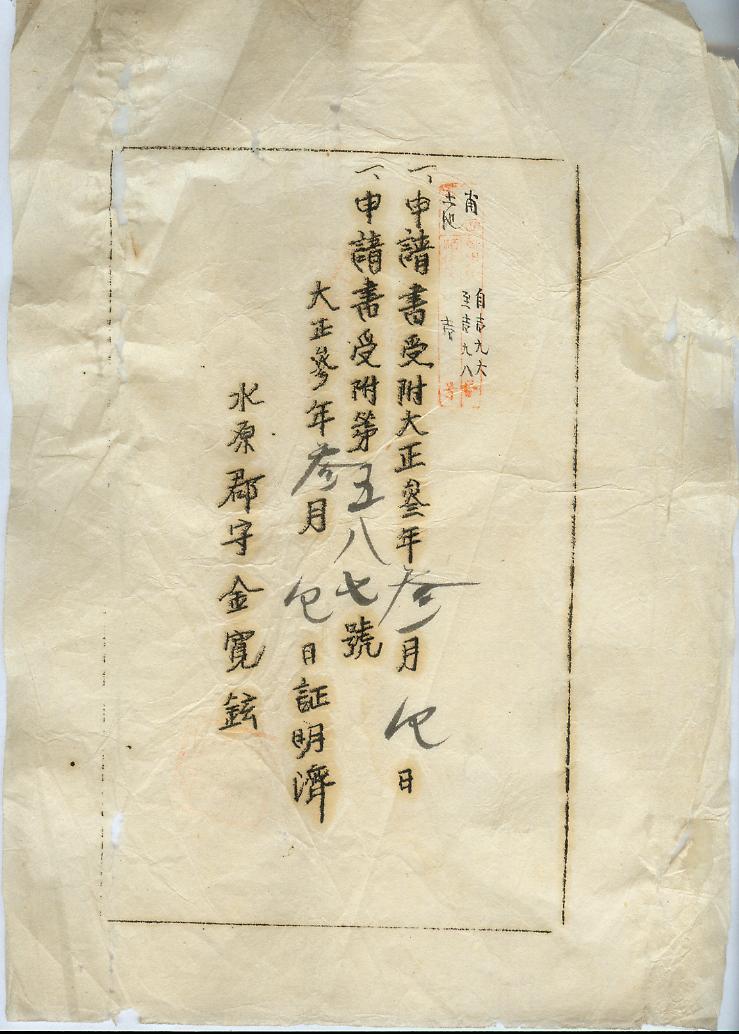 自壱九六
南 至壱九八
土地 壱 号
一、申請書受附大正參年参月 日
一、申請書受附第五八七號
大正參年参月 日証明濟
水原郡守金寬鉉